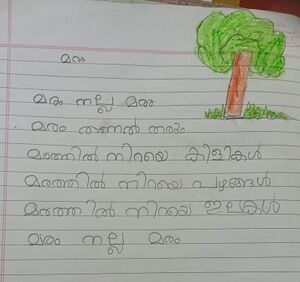 മരം
മരം നല്ല മരം
മരം തണൽ തരും
മരത്തിൽ നിറയെ കിളികൾ
മരത്തിൽ നിറയെ പഴങ്ങൾ
മരത്തിൽ നിറയെ ഇലകൾ
മരം നല്ല മരം